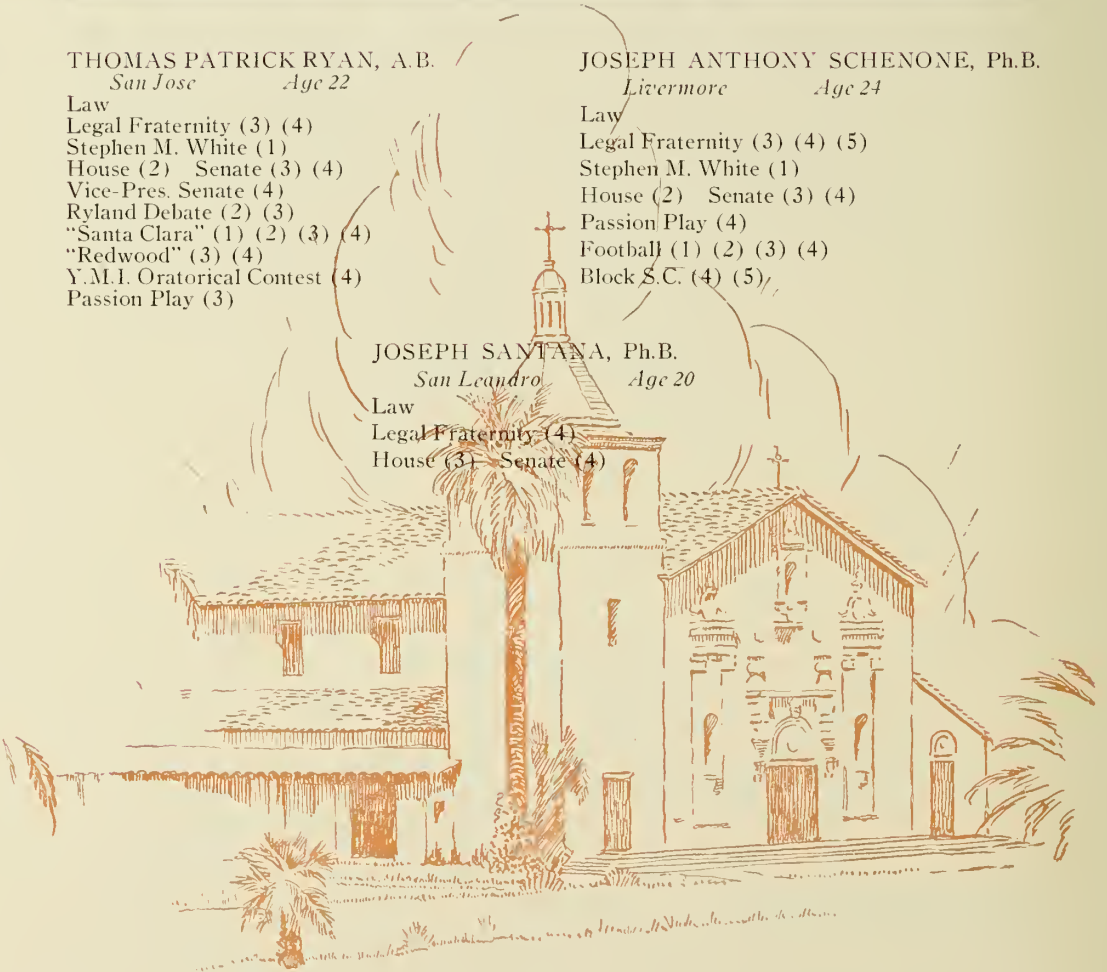 THOMAS PATRICK RYAN, A.B.
San Jose Age 22
Law
Legal Fraternity (3) (4)
Stephen M. White (1)
House (2) Senate (3) (4)
Vice-Pres. Senate (4)
Ryland Debate (2) (3)
"Santa Clara" (1) (2) (3) (4)
"Redwood" (3) (4)
Y.M.I. Oratorical Contest (4)
Passion Play (3)
JOSEPH ANTHONY SCHENONE, Ph.B.
Livermore Age 24
Law
Legal Fraternity (3) (4) (5)
Stephen M. White (1)
House (2) Senate (3) (4)
Passion Play (4)
Football (1) (2) (3) (4)
Block S.C. (4) (5)
JOSEPH SANTANA, Ph.B.
San Leandro Age 20
Law
Legal Fraternity (4)
House (3) Senate (4)